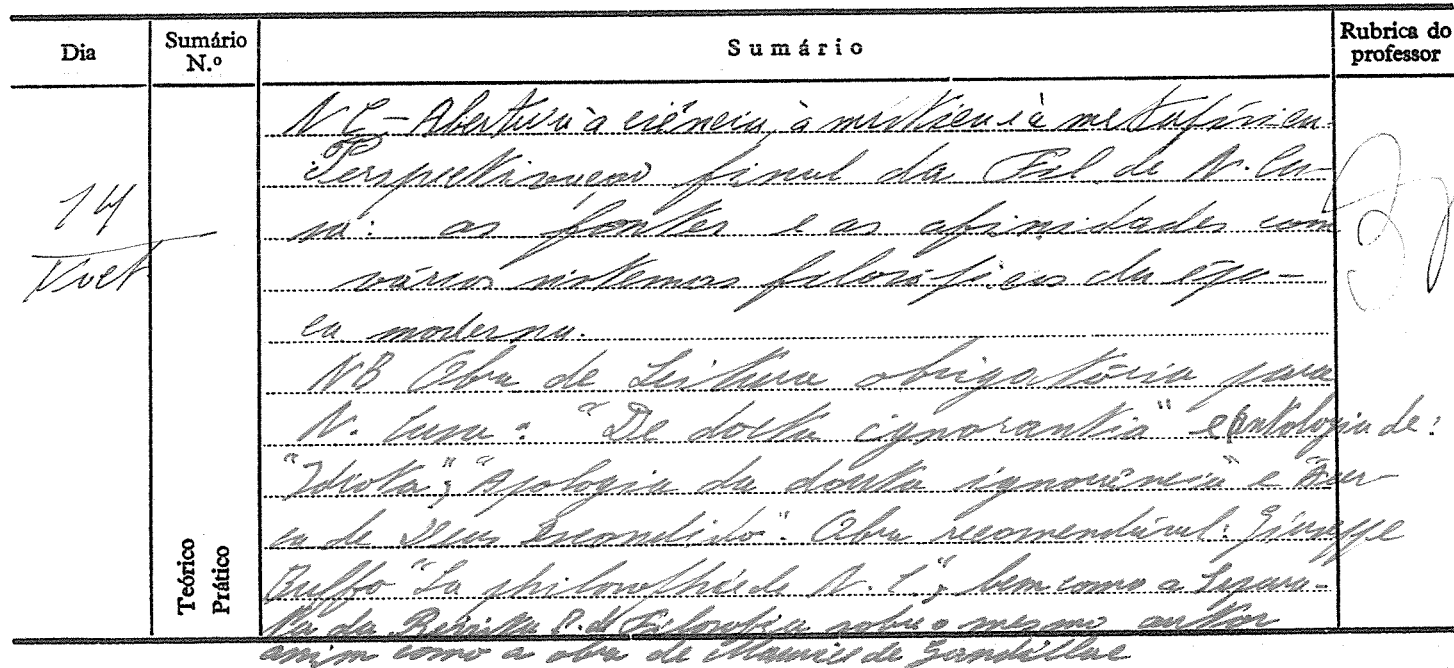 Dia
Sumário N.º
Sumário
Rubrica do professor
14
N. C. - Abertura à ciência, à mística e à metafísica.
Perspectivação final da Fil de N. Cu-
sa: as fontes e as afinidades com
vários sistemas filosóficos da épo-
ca moderna.
NB Obra de Leitura obrigatória para
N. Cusa: "De docta ignorantia" e Antologia de:
"Idiota"; "Apologia da douta ignorância" e "Acer-
ca de Deus Escondido". Obra recomendável: Giuseppe
Buffo "La philosophie de N. C."; bem como a Separa-
ta da Revista P. de Filosofia sobre o mesmo autor
assim como a obra de Maurice de Gandillac
Teórico
Prático